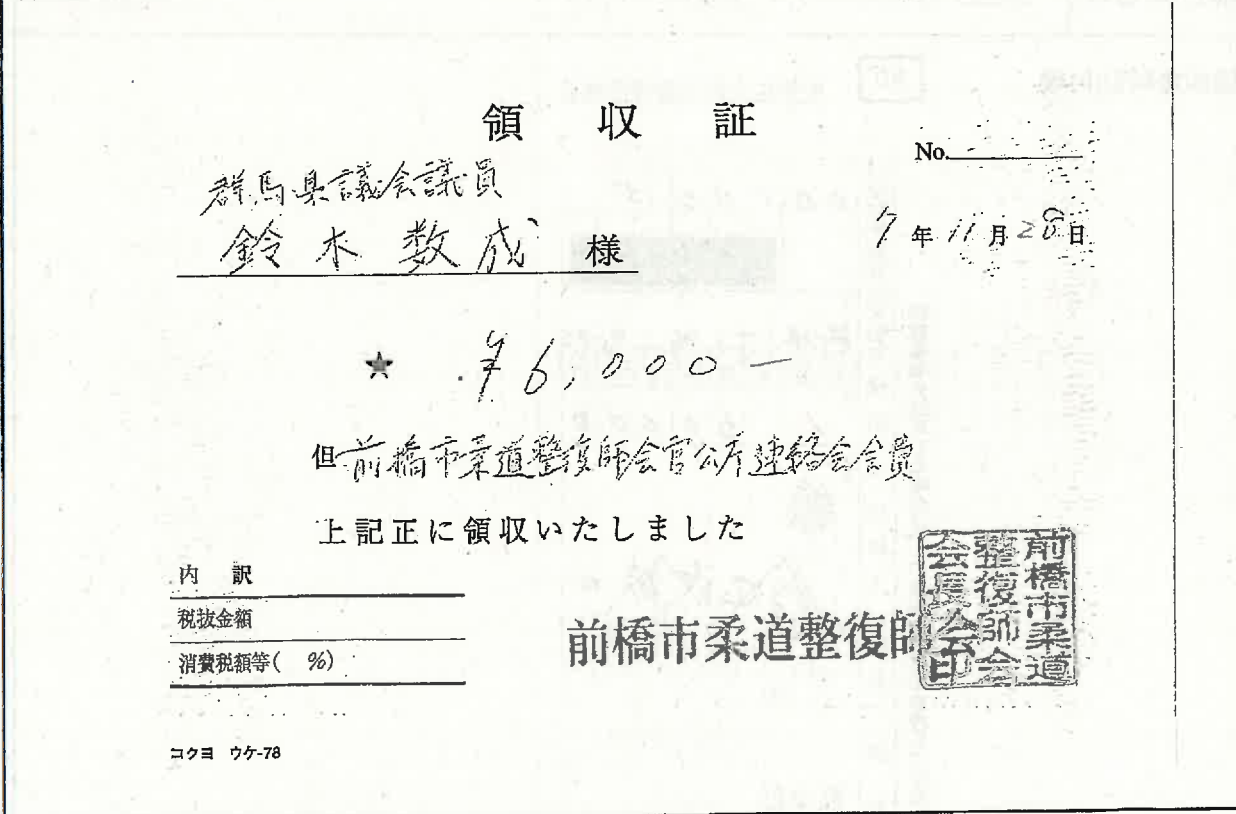 領収証
No.
群馬県議会議員
鈴木数成 様
7年11月28日
★ ¥6,000-
但 前橋市柔道整復師会官公庁連絡会会費
上記正に領収いたしました
内訳
税抜金額
消費税額等( %)
前橋市柔道整復師会
前橋市柔道
整復師会
会長印
コクヨ ウケ-78